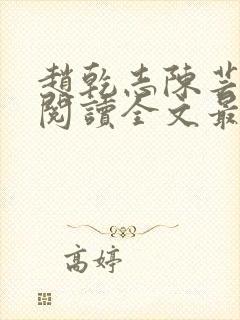 趙乾志陳芸
閱讀全文最
高婷